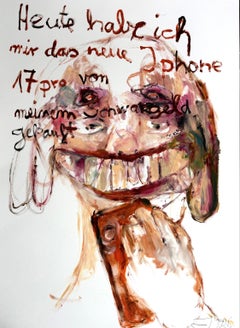 Heute habe ich
mir das neue Iphone
17 pro von
meinem Schwarzgeld
gekauft